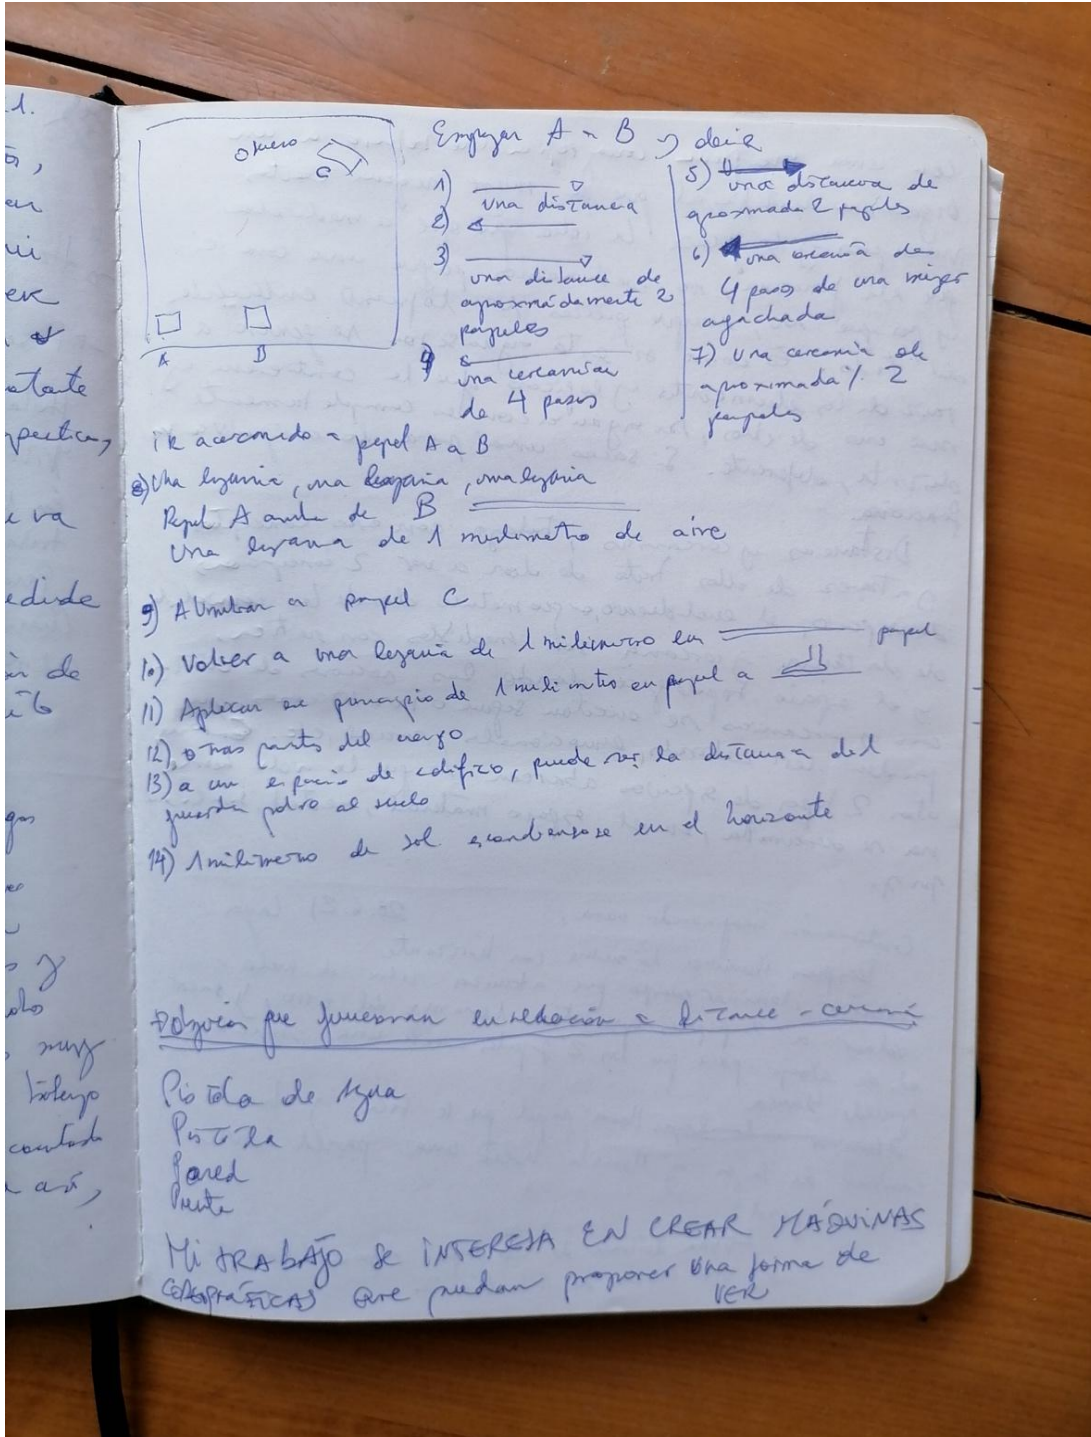 1.
A
B
C
Empujar A a B y decir
1)
una distancia
2)
3)
una distance de
aproximadamente 2
papeles
4)
una cercanía
de 4 pasos
5)
una distancia de
aproximada 2 papeles
6) una
4 pasos de una mujer
agachada
7) una cercania de
aproximada/. 2
papeles
ir acercando a papel A a B
8) Una lejania, una lejania, una lejania
Papel A de B
Una lejania de 1 milimetro de aire
9) Alumbrar a papel C
10) Volver a una lejania de 1 milimetro en papel
11) Aplicar ese principio de 1 milimetro en papel a
12) otras parts del cuerpo
13) a un espacio de edificio, puede ser la distancia del
guarda polvo al suelo
14) 1 milimetro de sol escondiendose en el horizonte
que funcionan en relación a distance - cercanía
Pistola de Agua
Pistola
Pared
Puente
Mi TRABAJO SE INTERESA EN CREAR MÁQUINAS
COREOGRÁFICAS QUE puedan proponer una forma de
VER